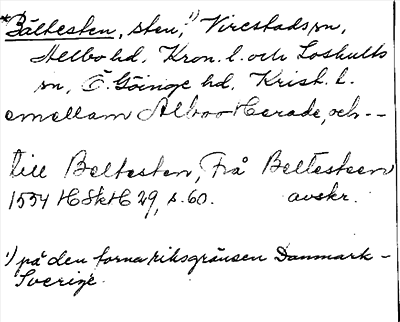 *Bältesten, sten,¹) Virestads sn,
Allbo hd, Kron. l. och Loshults
sn, Ö. Göinge hd, Krist. l.
emellam Alboo Herade, och --
till Beltesten, Frå Beltesteen
1554 HSkH 29, s. 60. avskr.
¹) på den forna riksgränsen Danmark -
Sverige.